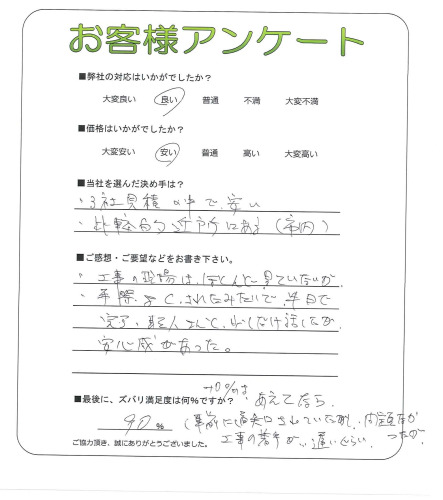 お客様アンケート
■弊社の対応はいかがでしたか？
大変良い 良い 普通 不満 大変不満
■価格はいかがでしたか？
大変安い 安い 普通 高い 大変高い
■当社を選んだ決め手は？
・3社見積の中で、安い
・比較的近所にある（市内）
■ご感想・ご要望などをお書き下さい。
・工事の現場は、ほとんど見ていないが、
手際よく、されたみたいで、半日で
完了、職人さんと、少しだけ話したが、
安心感があった。
■最後に、ズバリ満足度は何％ですか？
-10%は、あえてなら、
90 %
（事前に
工事の着手が、遅いぐらい、
ご協力頂き、誠にありがとうございました。